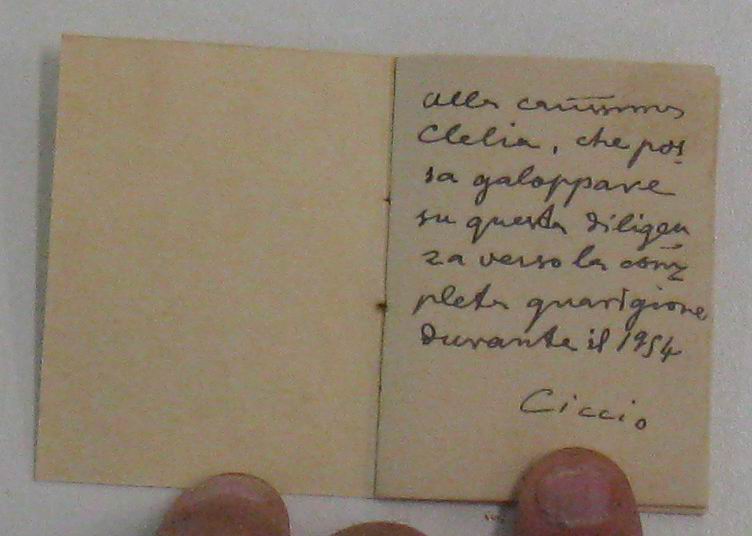 alla carissima
Clelia, che pos
sa galoppare
su questa diligen
za verso la com
pleta guarigione
durante il 1954
Ciccio